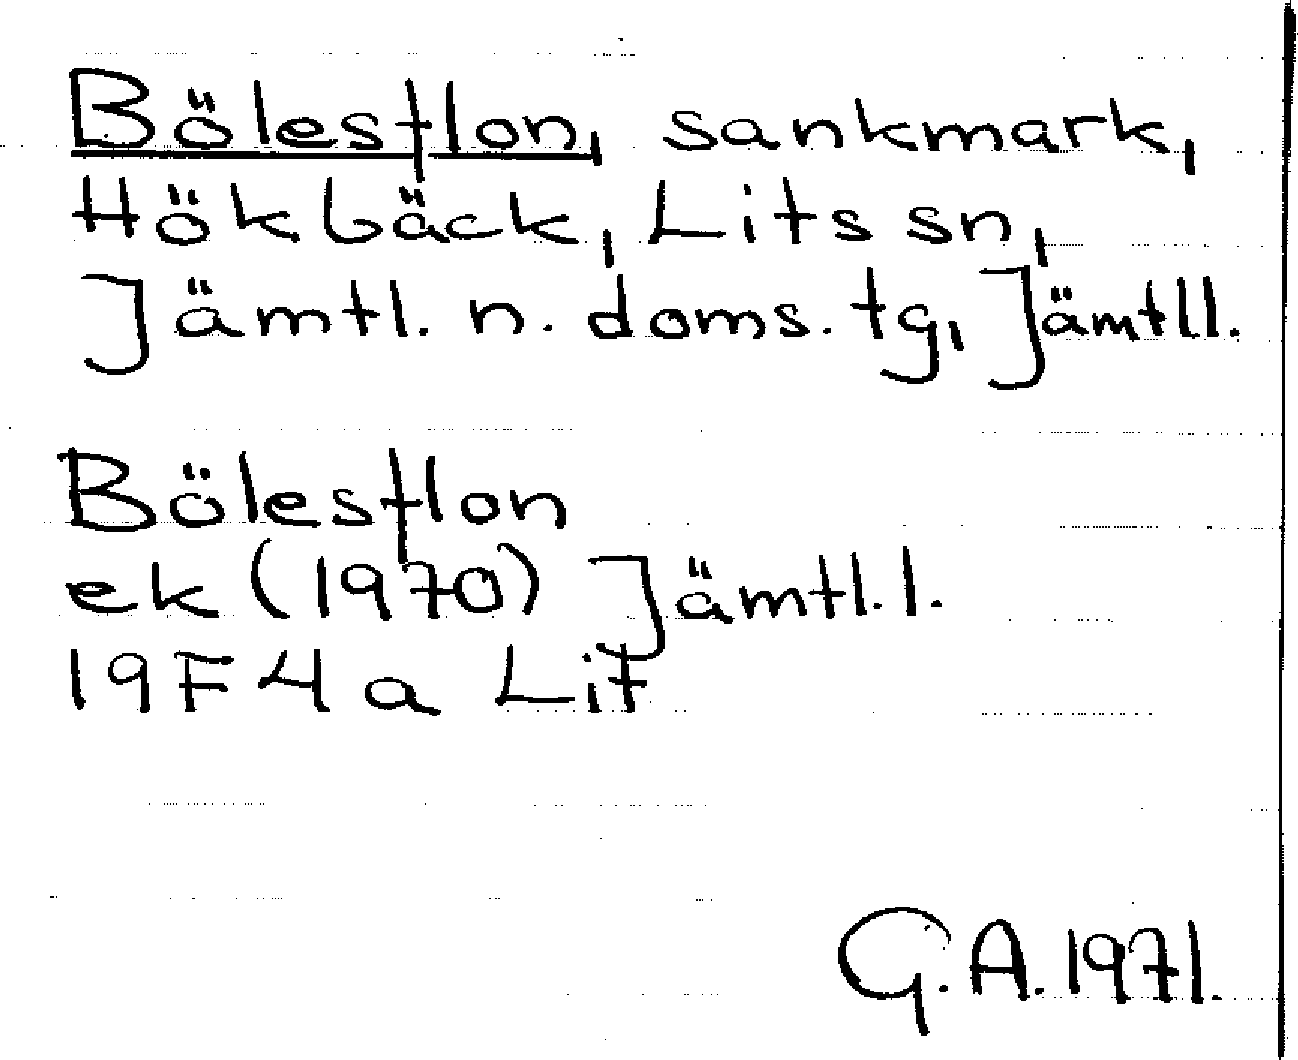 Bölestlon, sankmark,
Hökbäck, Lits sn,
Jämtl. n. doms. tg, Jämtll.
Bölestlon
ek (1970) Jämtl. l.
19F4a Lit
G.A. 1971.